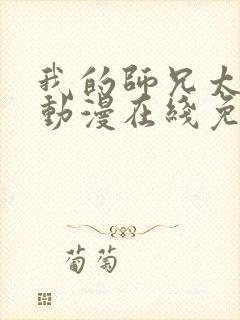 我的師兄太
動漫在綫免
葡萄